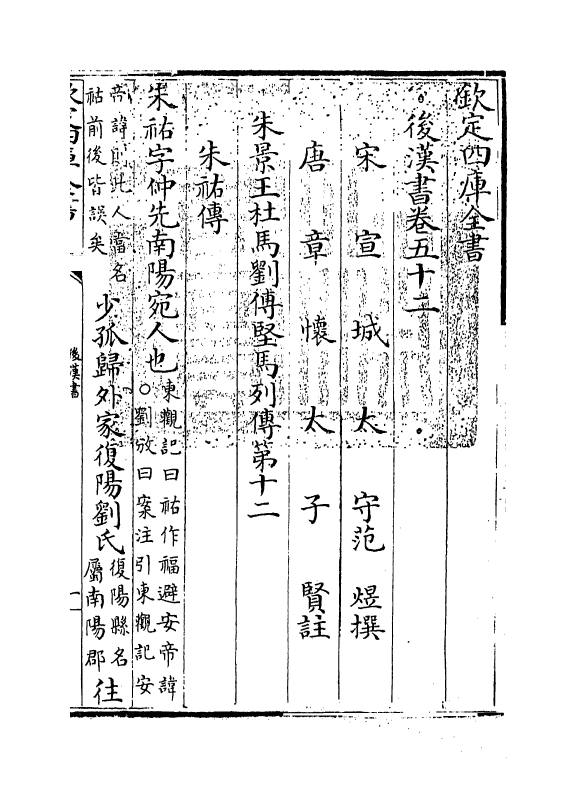 欽定四庫全書
後漢書卷五十二
宋宣城太守范煜撰
唐章懷太子賢註
朱景王杜馬劉傅堅馬列傳第十二
朱祐傳
朱祐字仲先南陽宛人也東觀記曰祐作福避安帝諱
○劉攽曰案注引東觀記安
帝諱則此人當名
祜前後皆誤矣
少孤歸外家復陽劉氏復陽縣名
屬南陽郡
往
後漢書
一